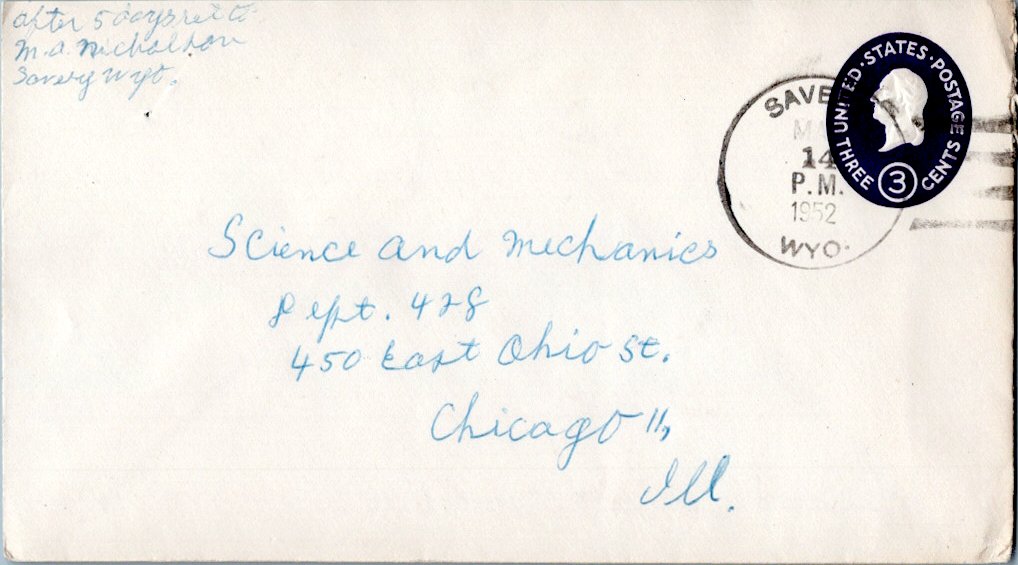 after 5 days ret to
M.A. Nicholson
Savery Wyo.
UNITED·STATES·POSTAGE
THREE 3 CENTS
SAVE
MA
14
P.M.
1952
WYO.
Science and Mechanics
Dept. 428
450 East Ohio St.
Chicago 11,
Ill.